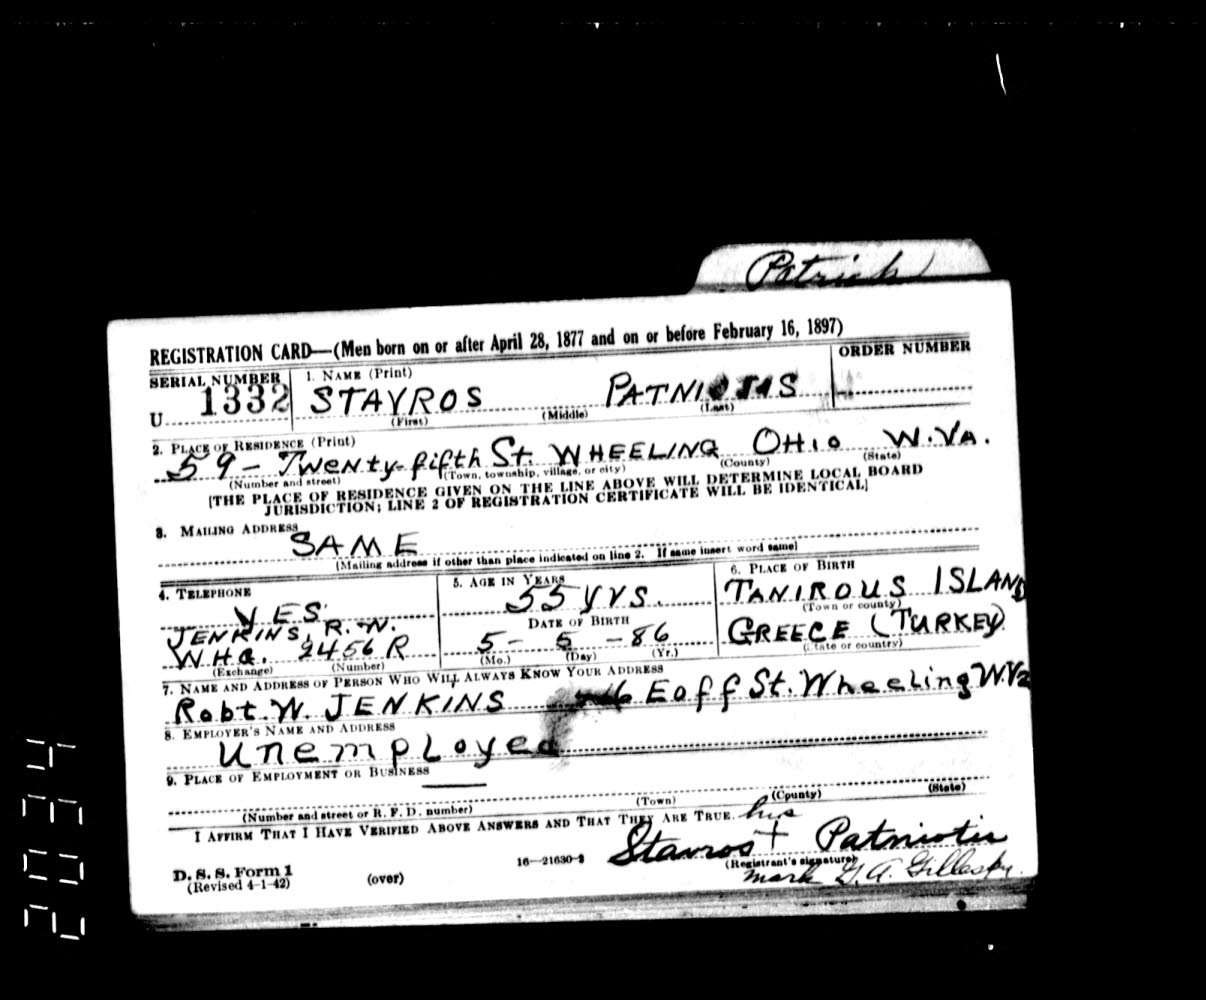 Patrick
REGISTRATION CARD—(Men born on or after April 28, 1877 and on or before February 16, 1897)
SERIAL NUMBER
1. NAME (Print)
ORDER NUMBER
U 1332
STAVROS PATNIOTIS
(First) (Middle) (Last)
2. PLACE OF RESIDENCE (Print)
59 - TWENty-fifth St. WHEELING OHIO W.VA.
(Number and street) (Town, township, village, or city) (County) (State)
[THE PLACE OF RESIDENCE GIVEN ON THE LINE ABOVE WILL DETERMINE LOCAL BOARD
JURISDICTION; LINE 2 OF REGISTRATION CERTIFICATE WILL BE IDENTICAL]
3. MAILING ADDRESS
SAME
[Mailing address if other than place indicated on line 2. If same insert word same]
4. TELEPHONE
YES
JENKINS, R.W.
WHG. 2456 R
(Exchange) (Number)
5. AGE IN YEARS
55 yrs.
DATE OF BIRTH
5- 5 -86
(Mo.) (Day) (Yr.)
6. PLACE OF BIRTH
TANIROUS ISLAND
(Town or county)
GREECE (TURKEY)
(State or country)
7. NAME AND ADDRESS OF PERSON WHO WILL ALWAYS KNOW YOUR ADDRESS
Robt. W. JENKINS Eoff St. Wheeling W.Va
8. EMPLOYER'S NAME AND ADDRESS
Unemployed
9. PLACE OF EMPLOYMENT OR BUSINESS
(Number and street or R. F. D. number) (Town) (County) (State)
I AFFIRM THAT I HAVE VERIFIED ABOVE ANSWERS AND THAT THEY ARE TRUE.
his
Stavros + Patniotis
D. S. S. Form 1
(Revised 4-1-42)
(over)
16—21630-2
(Registrant's signature)
mark G. A. Gillespy.
2034